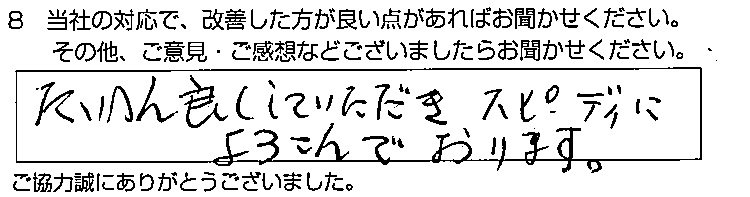 8 当社の対応で、改善した方が良い点があればお聞かせください。
その他、ご意見・ご感想などございましたらお聞かせください。
たいへん良くしていただき スピーディに
よろこんで おります。
ご協力誠にありがとうございました。